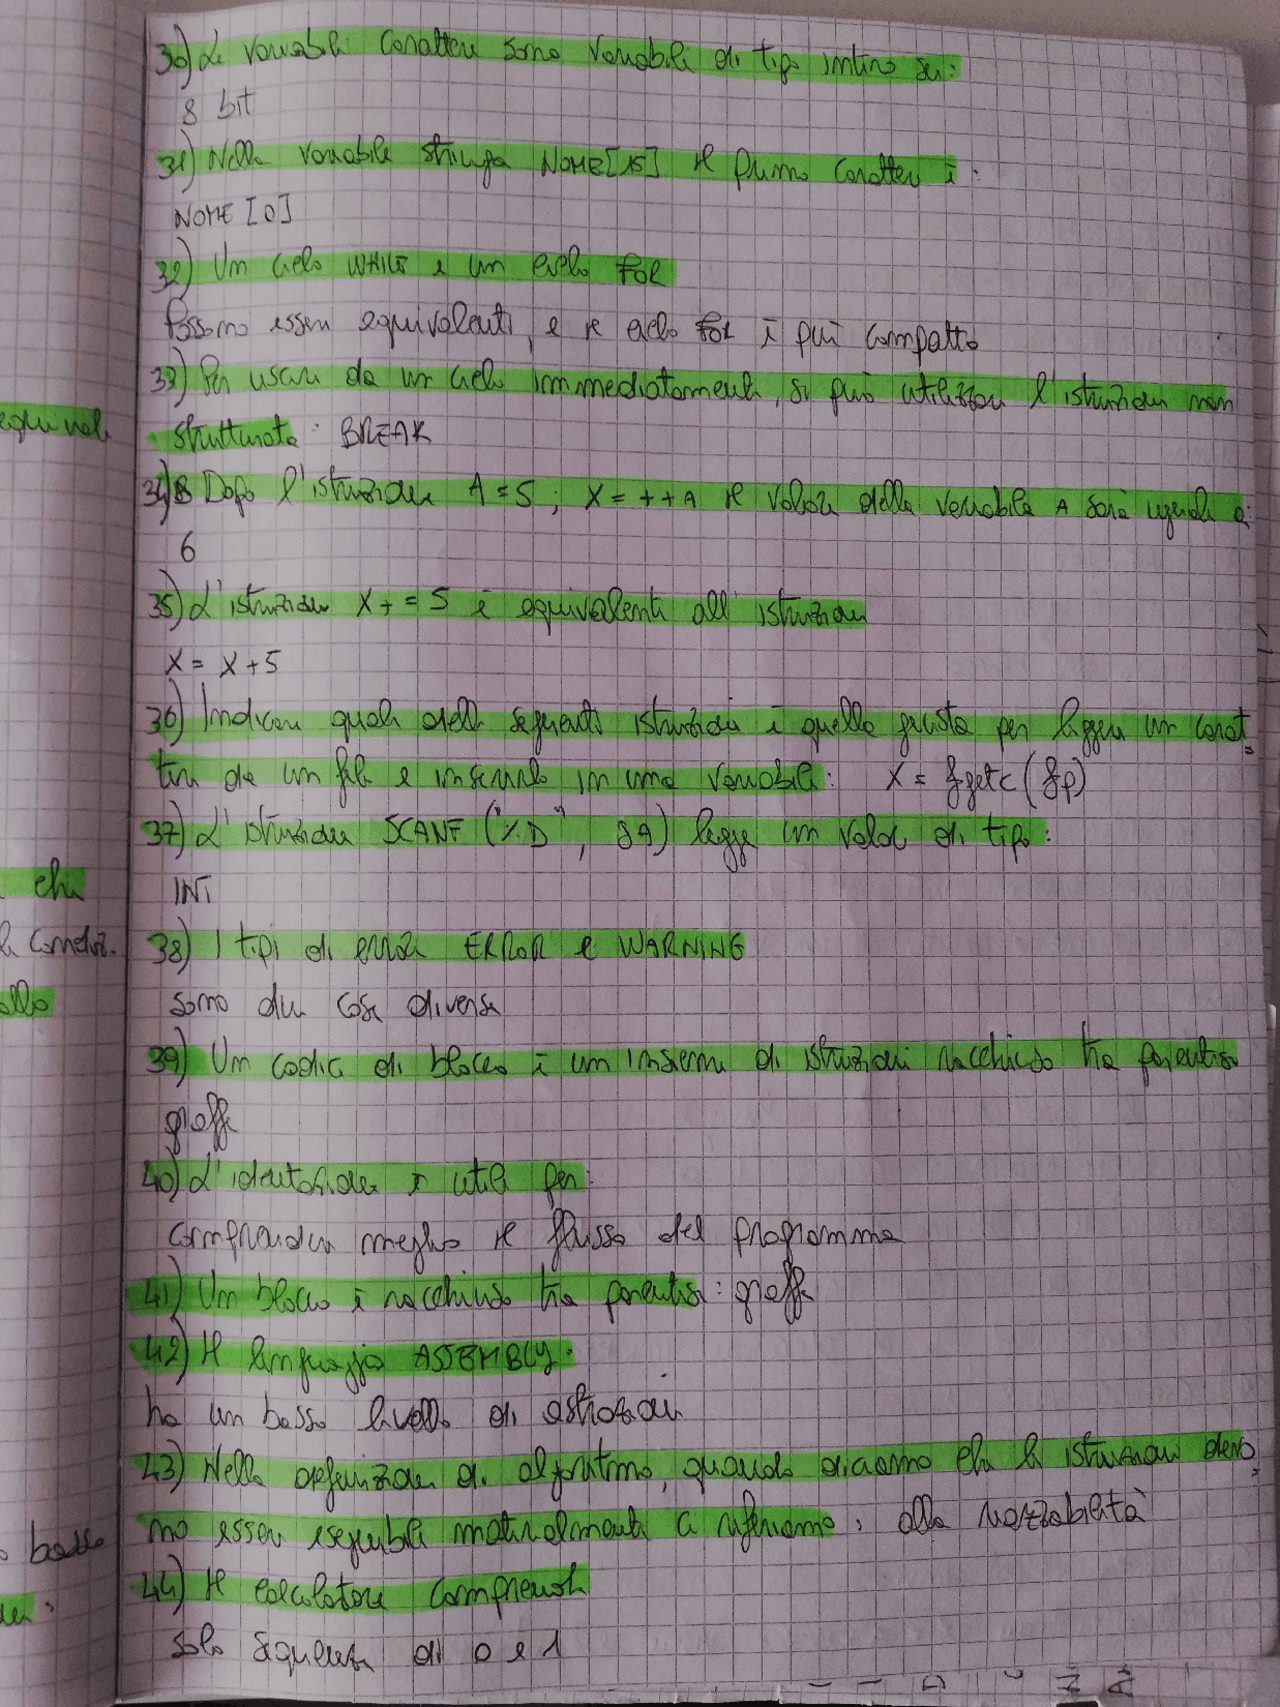 30) Le variabili carattere sono variabili di tipo intero su:
8 bit
31) Nella variabile stringa NOME[15] il primo carattere è:
NOME [0]
32) Un ciclo WHILE e un ciclo FOR
Possono essere equivalenti, e il ciclo for è più compatto
33) Per uscire da un ciclo immediatamente, si può utilizzare l'istruzione non
equivale
strutturata: BREAK
34) Dopo l'istruzione A=5; X=++A il valore della variabile A sarà uguale a:
6
35) L'istruzione X+=5 è equivalente all'istruzione
X = X+5
36) Indicare quale delle seguenti istruzioni è quella giusta per leggere un carat
tere da un file e inserirlo in una variabile: X = fgetc(fp)
37) L'istruzione SCANF ("%D", &A) legge un valore di tipo:
che
INT
la condiz.
38) I tipi di errore ERROR e WARNING
sono due cose diverse
39) Un codice di blocco è un insieme di istruzioni racchiuso tra parentesi
graffe
40) L'identazione è utile per:
comprendere meglio il flusso del programma
41) Un blocco è racchiuso tra parentesi: graffe
42) Il linguaggio ASSEMBLY:
ha un basso livello di astrazione
43) Nella definizione di algoritmo, quando diciamo che le istruzioni devo
no essere eseguibili materialmente ci riferiamo: alla realizzabilità
basso
44) Il calcolatore comprende
solo sequenze di 0 e 1